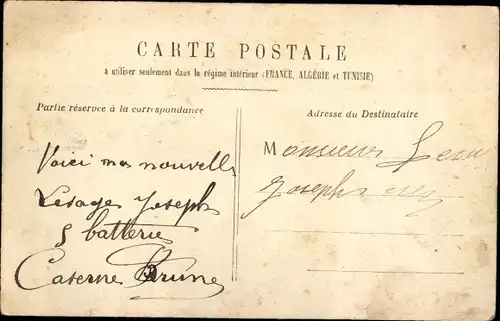 CARTE POSTALE
à utiliser seulement dans le régime intérieur (FRANCE, ALGÉRIE et TUNISIE)
Partie réservée à la correspondance
Adresse du Destinataire
Voici ma nouvelle
Lesage Joseph
5 batterie
Caserne Brune
Monsieur
Joseph